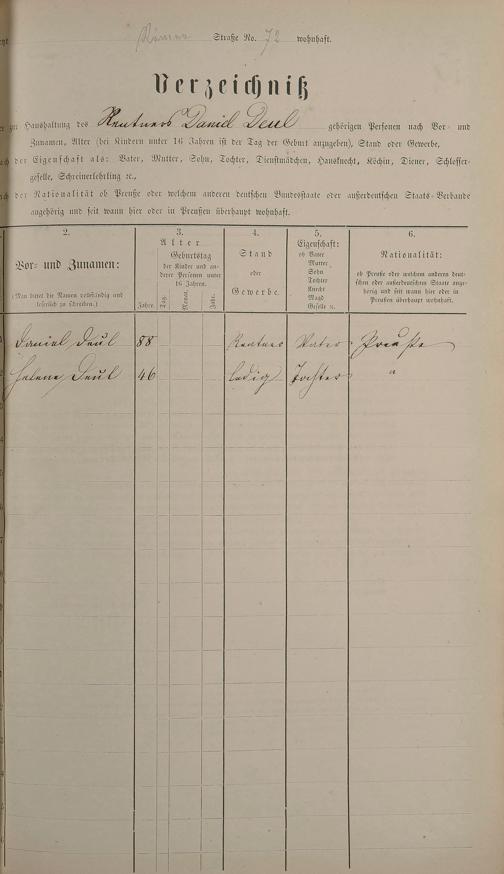 Straße No. 72 wohnhaft.
Verzeichniß
zur Haushaltung des Rentners Daniel Deul gehörigen Personen nach Vor- und
Zunamen, Alter (bei Kindern unter 16 Jahren ist der Tag der Geburt anzugeben), Stand oder Gewerbe,
der Eigenschaft als: Vater, Mutter, Sohn, Tochter, Dienstmädchen, Hausknecht, Köchin, Diener, Schlosser-
geselle, Schreinerlehrling ꝛc.,
der Nationalität ob Preuße oder welchem anderen deutschen Bundesstaate oder außerdeutschen Staats-Verbande
angehörig und seit wann hier oder in Preußen überhaupt wohnhaft.
2.
Vor- und Zunamen:
(Man bittet die Namen vollständig und
leserlich zu schreiben.)
3.
Alter
Geburtstag
der Kinder und an-
derer Personen unter
16 Jahren.
Jahre. Tag. Monat. Jahr.
4.
Stand
oder
Gewerbe.
5.
Eigenschaft:
ob Vater
Mutter
Sohn
Tochter
Knecht
Magd
Geselle ꝛc.
6.
Nationalität:
ob Preuße oder welchem anderen deut-
schen oder außerdeutschen Staate ange-
hörig und seit wann hier oder in
Preußen überhaupt wohnhaft.
Daniel Deul 88 Rentner Vater Preuße
Helene Deul 46 ledig Tochter "